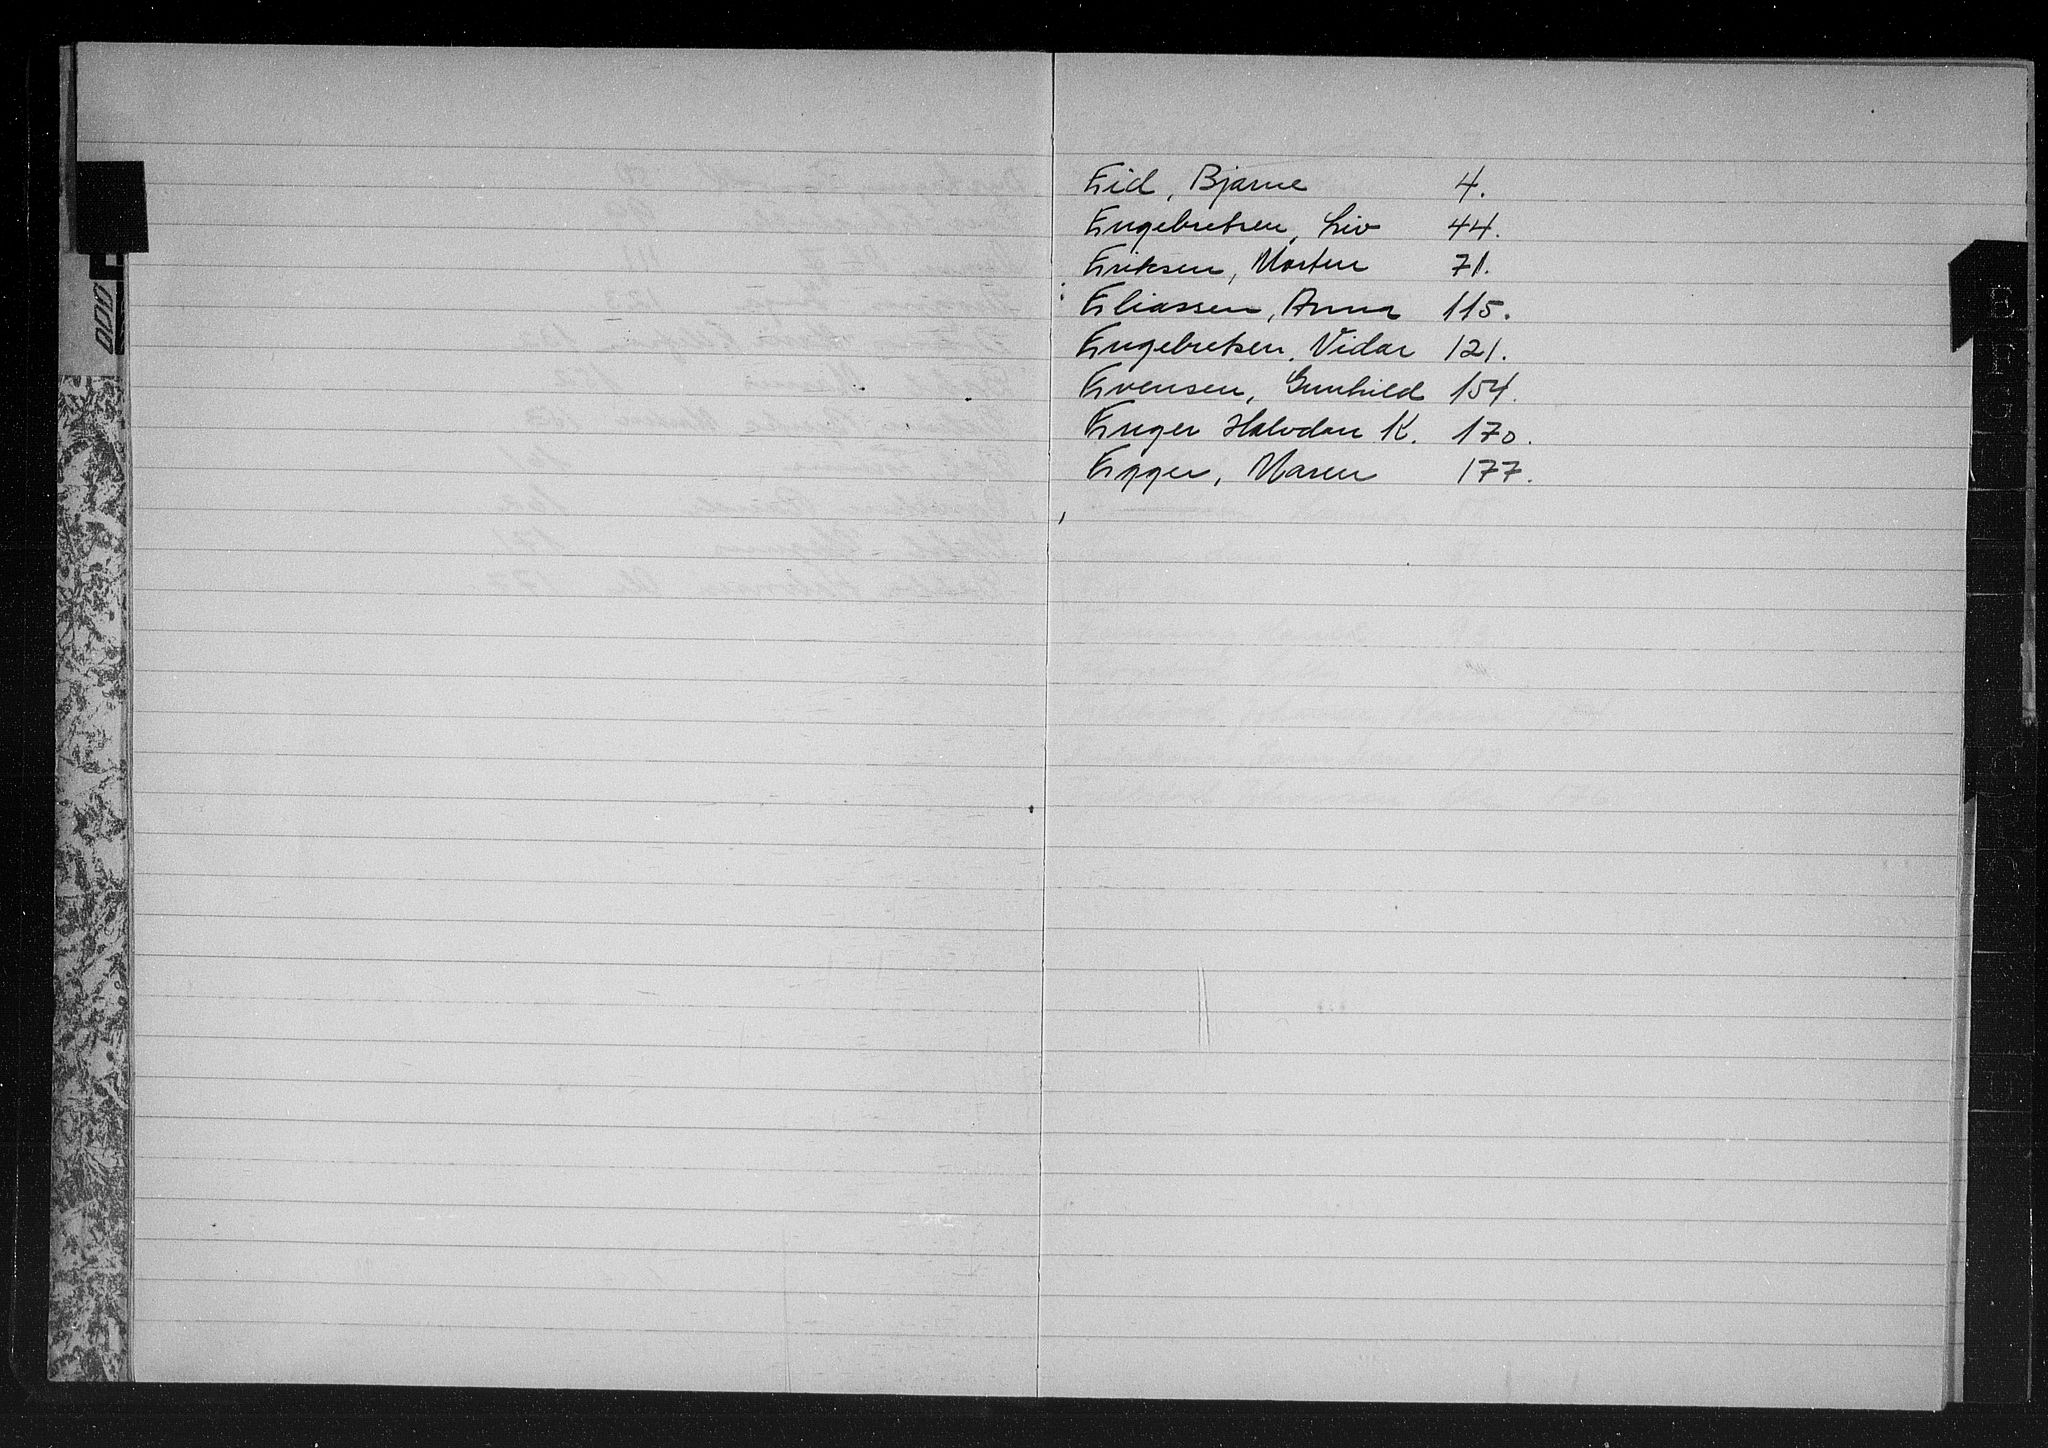 Eid, Bjarne 4.
Engebretsen, Liv 44.
Eriksen, Morten 71.
Eliassen, Anna 115.
Engebretsen, Vidar 121.
Evensen, Gunhild 154.
Enger Halvdan K. 170.
Egger, Maren 177.